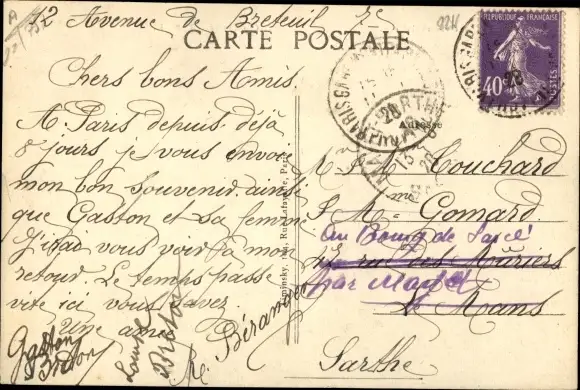 12 Avenue de Breteuil
CARTE POSTALE
RÉPUBLIQUE FRANÇAISE
40c
POSTES
Chers bons Amis
A Paris depuis déjà
8 jours je vous envoie
mon bon souvenir ainsi
que Gaston et sa femme
J'irai vous voir à mon
retour. Le temps passe
vite ici vous savez.
Une amie
Gaston
Breton
Louise
Breton
Re. Béranger
Adresse
M. Couchard
M. Gomard
au Bourg de Sarcé
rue des Mûriers
par Mayet
Le Mans
Sarthe
Rue Lafayette, Paris